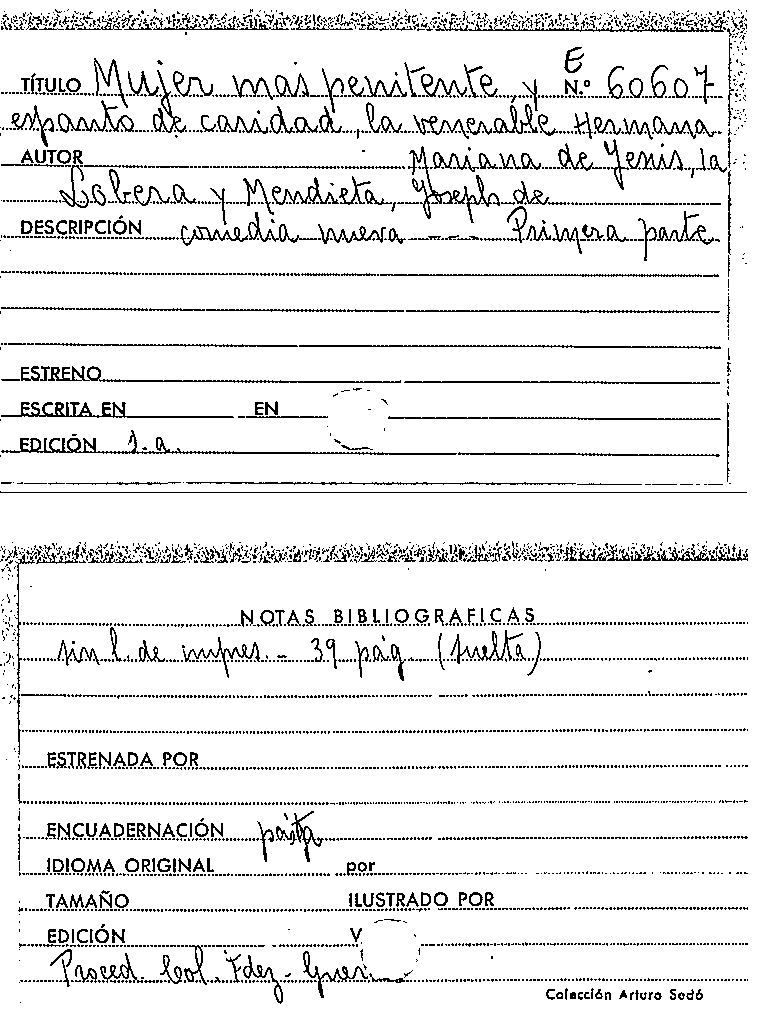 E
TÍTULO Mujer mas penitente, y N.º 60607
espanto de caridad, la venerable Hermana
AUTOR Mariana de Jesus, la
Lobera y Mendieta, Joseph de
DESCRIPCIÓN comedia nueva --- Primera parte
ESTRENO
ESCRITA EN EN
EDICIÓN s.a.
NOTAS BIBLIOGRAFICAS
sin l. de impres. - 39 pág (suelta)
ESTRENADA POR
ENCUADERNACIÓN pasta
IDIOMA ORIGINAL por
TAMAÑO ILUSTRADO POR
EDICIÓN V
Proced. Col. Fdez-Guer
Colección Arturo Sedó